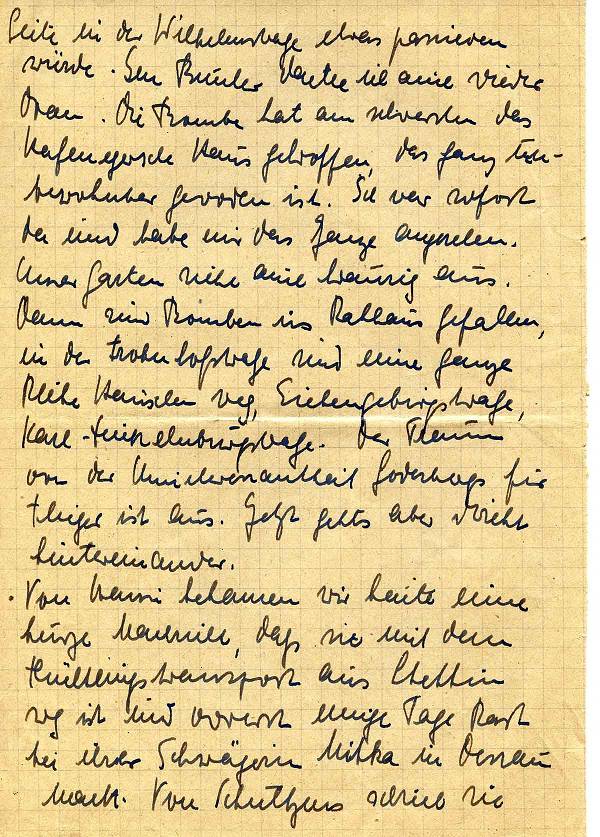 Seite in der Wilhelmstraße etwas passieren
würde. Den Bunker
dran. Die Bombe hat am schwersten das
Haus getroffen, das ganz un-
bewohnbar geworden ist. Ich war sofort
da und habe mir das Ganze angesehen.
Unser Garten sieht auch traurig aus.
Dann sind Bomben ins Rathaus gefallen,
in der sind eine ganze
Reihe Häuschen weg, Siebengebirgstrasse,
Karl-Finkelnburgstrasse. Der Traum
von der Unsicherheit Godesbergs für
Flieger ist aus. Jetzt gehts aber dicht
hintereinander.
Von Hanni bekamen wir heute eine
kurze Nachricht, daß sie mit dem
Flüchtlingstransport aus Stettin
weg ist und vorerst einige Tage Rast
bei ihrer Schwägerin Milka in Dessau
macht. Von schrieb sie